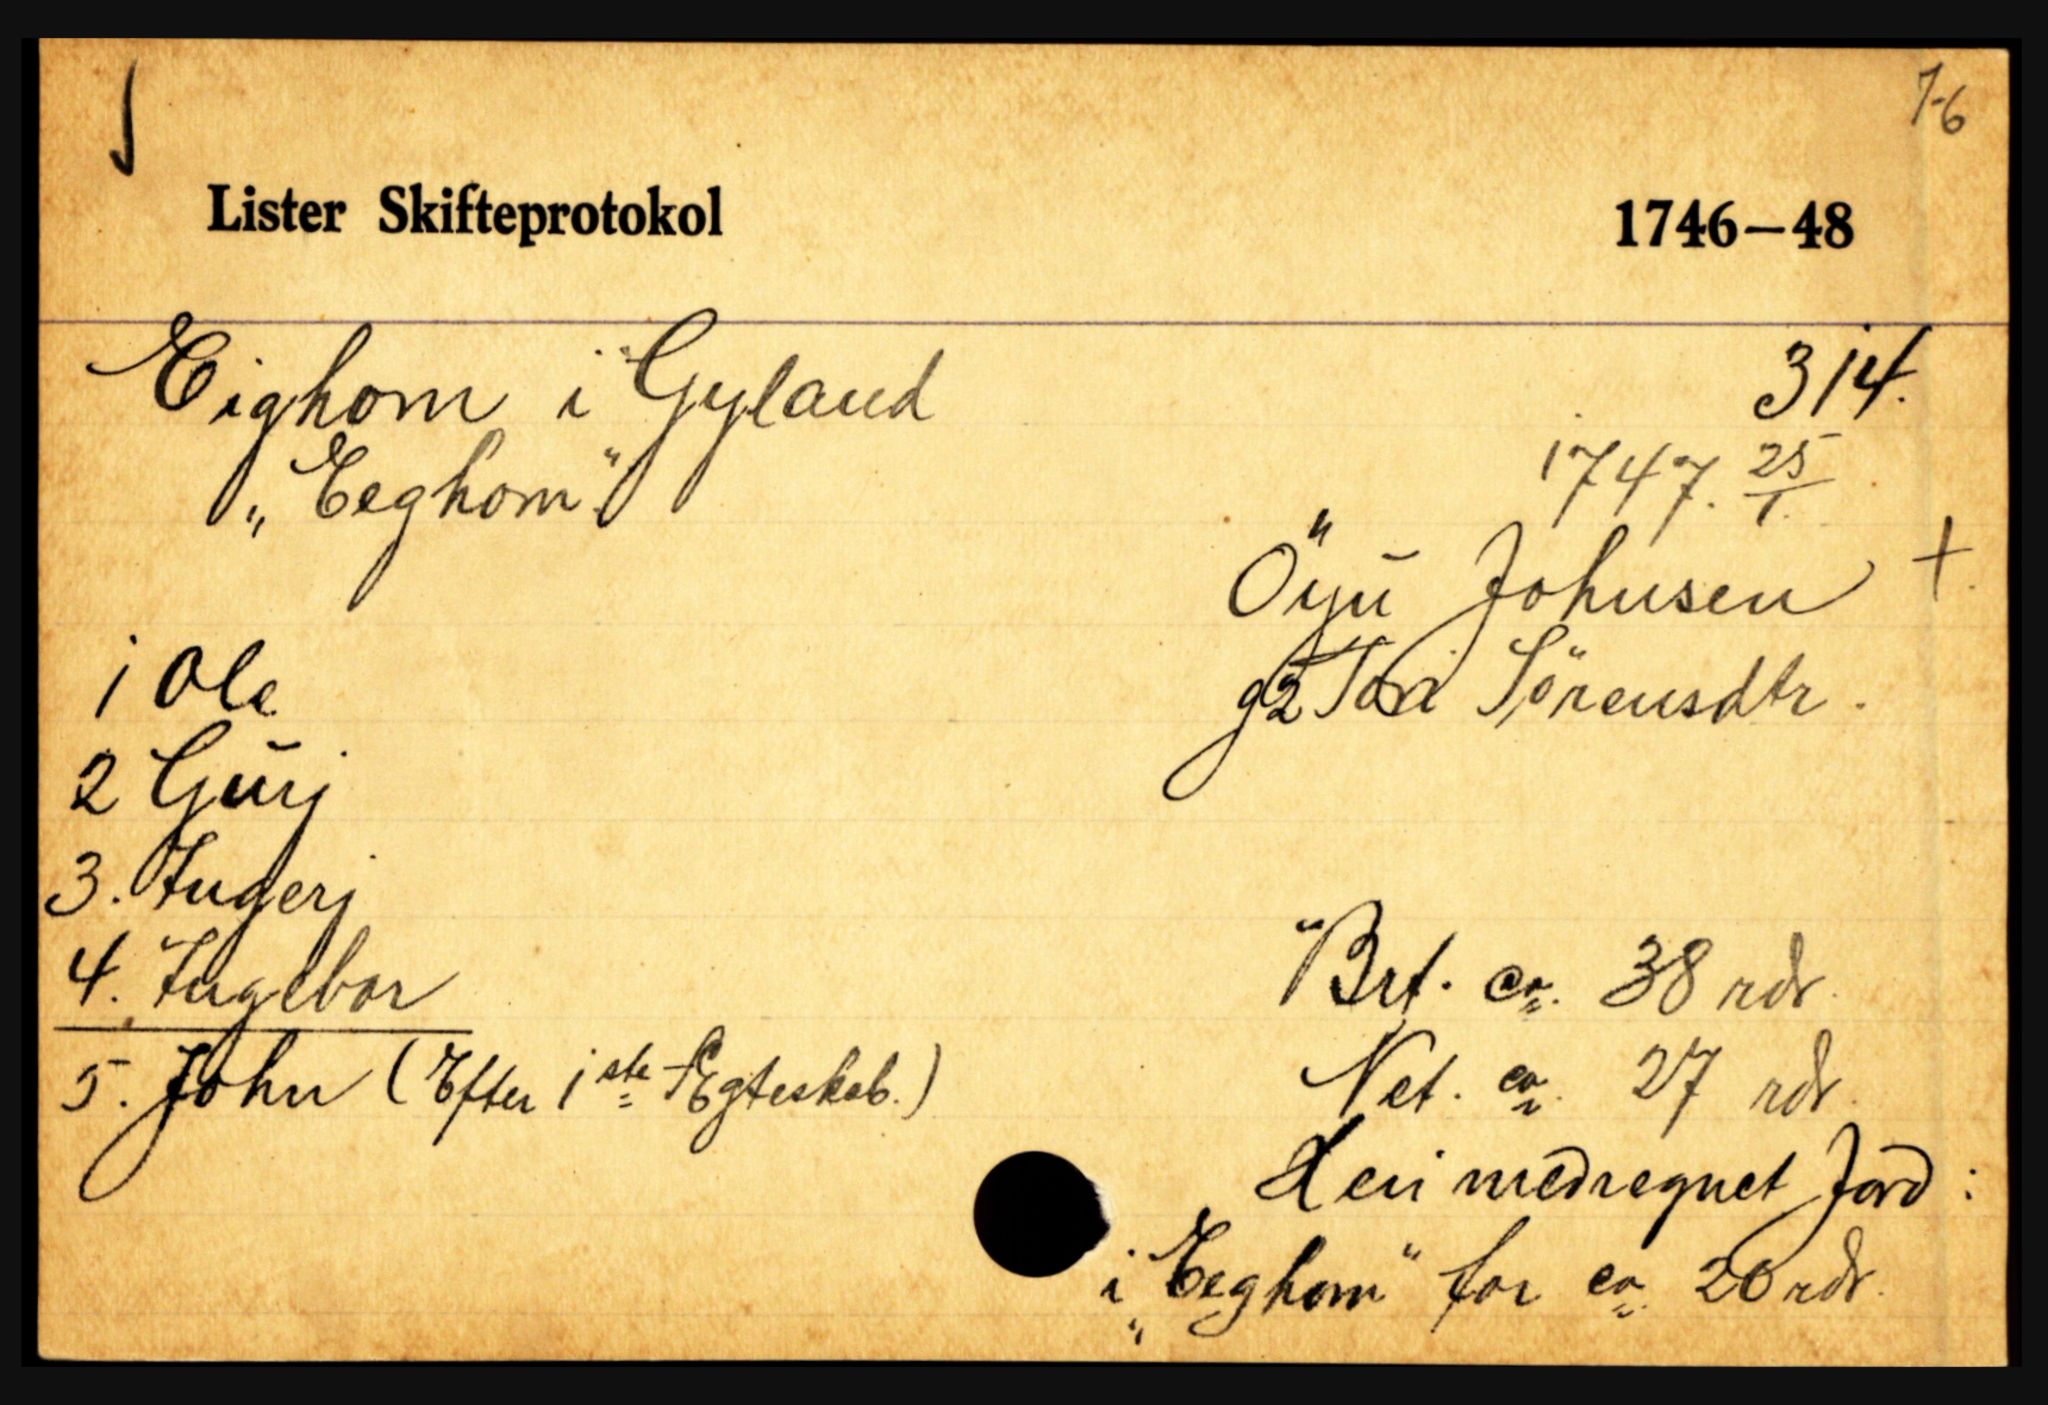 7-6
Lister Skifteprotokol 1746—48
Eighom i Gyland 314.
„Eeghom“ 1747. 25/1.
Öyü Johnsen +.
1 Ole g2 Tori Sörensdtr.
2 Gürj
3. Ingerj
4. Ingebor Brt. ca. 38 rdr.
5. John (Efter 1ste Egteskab.) Net. ca. 27 rdr.
Heri medregnet Jord:
i „Eeghom“ for ca. 20 rdr.